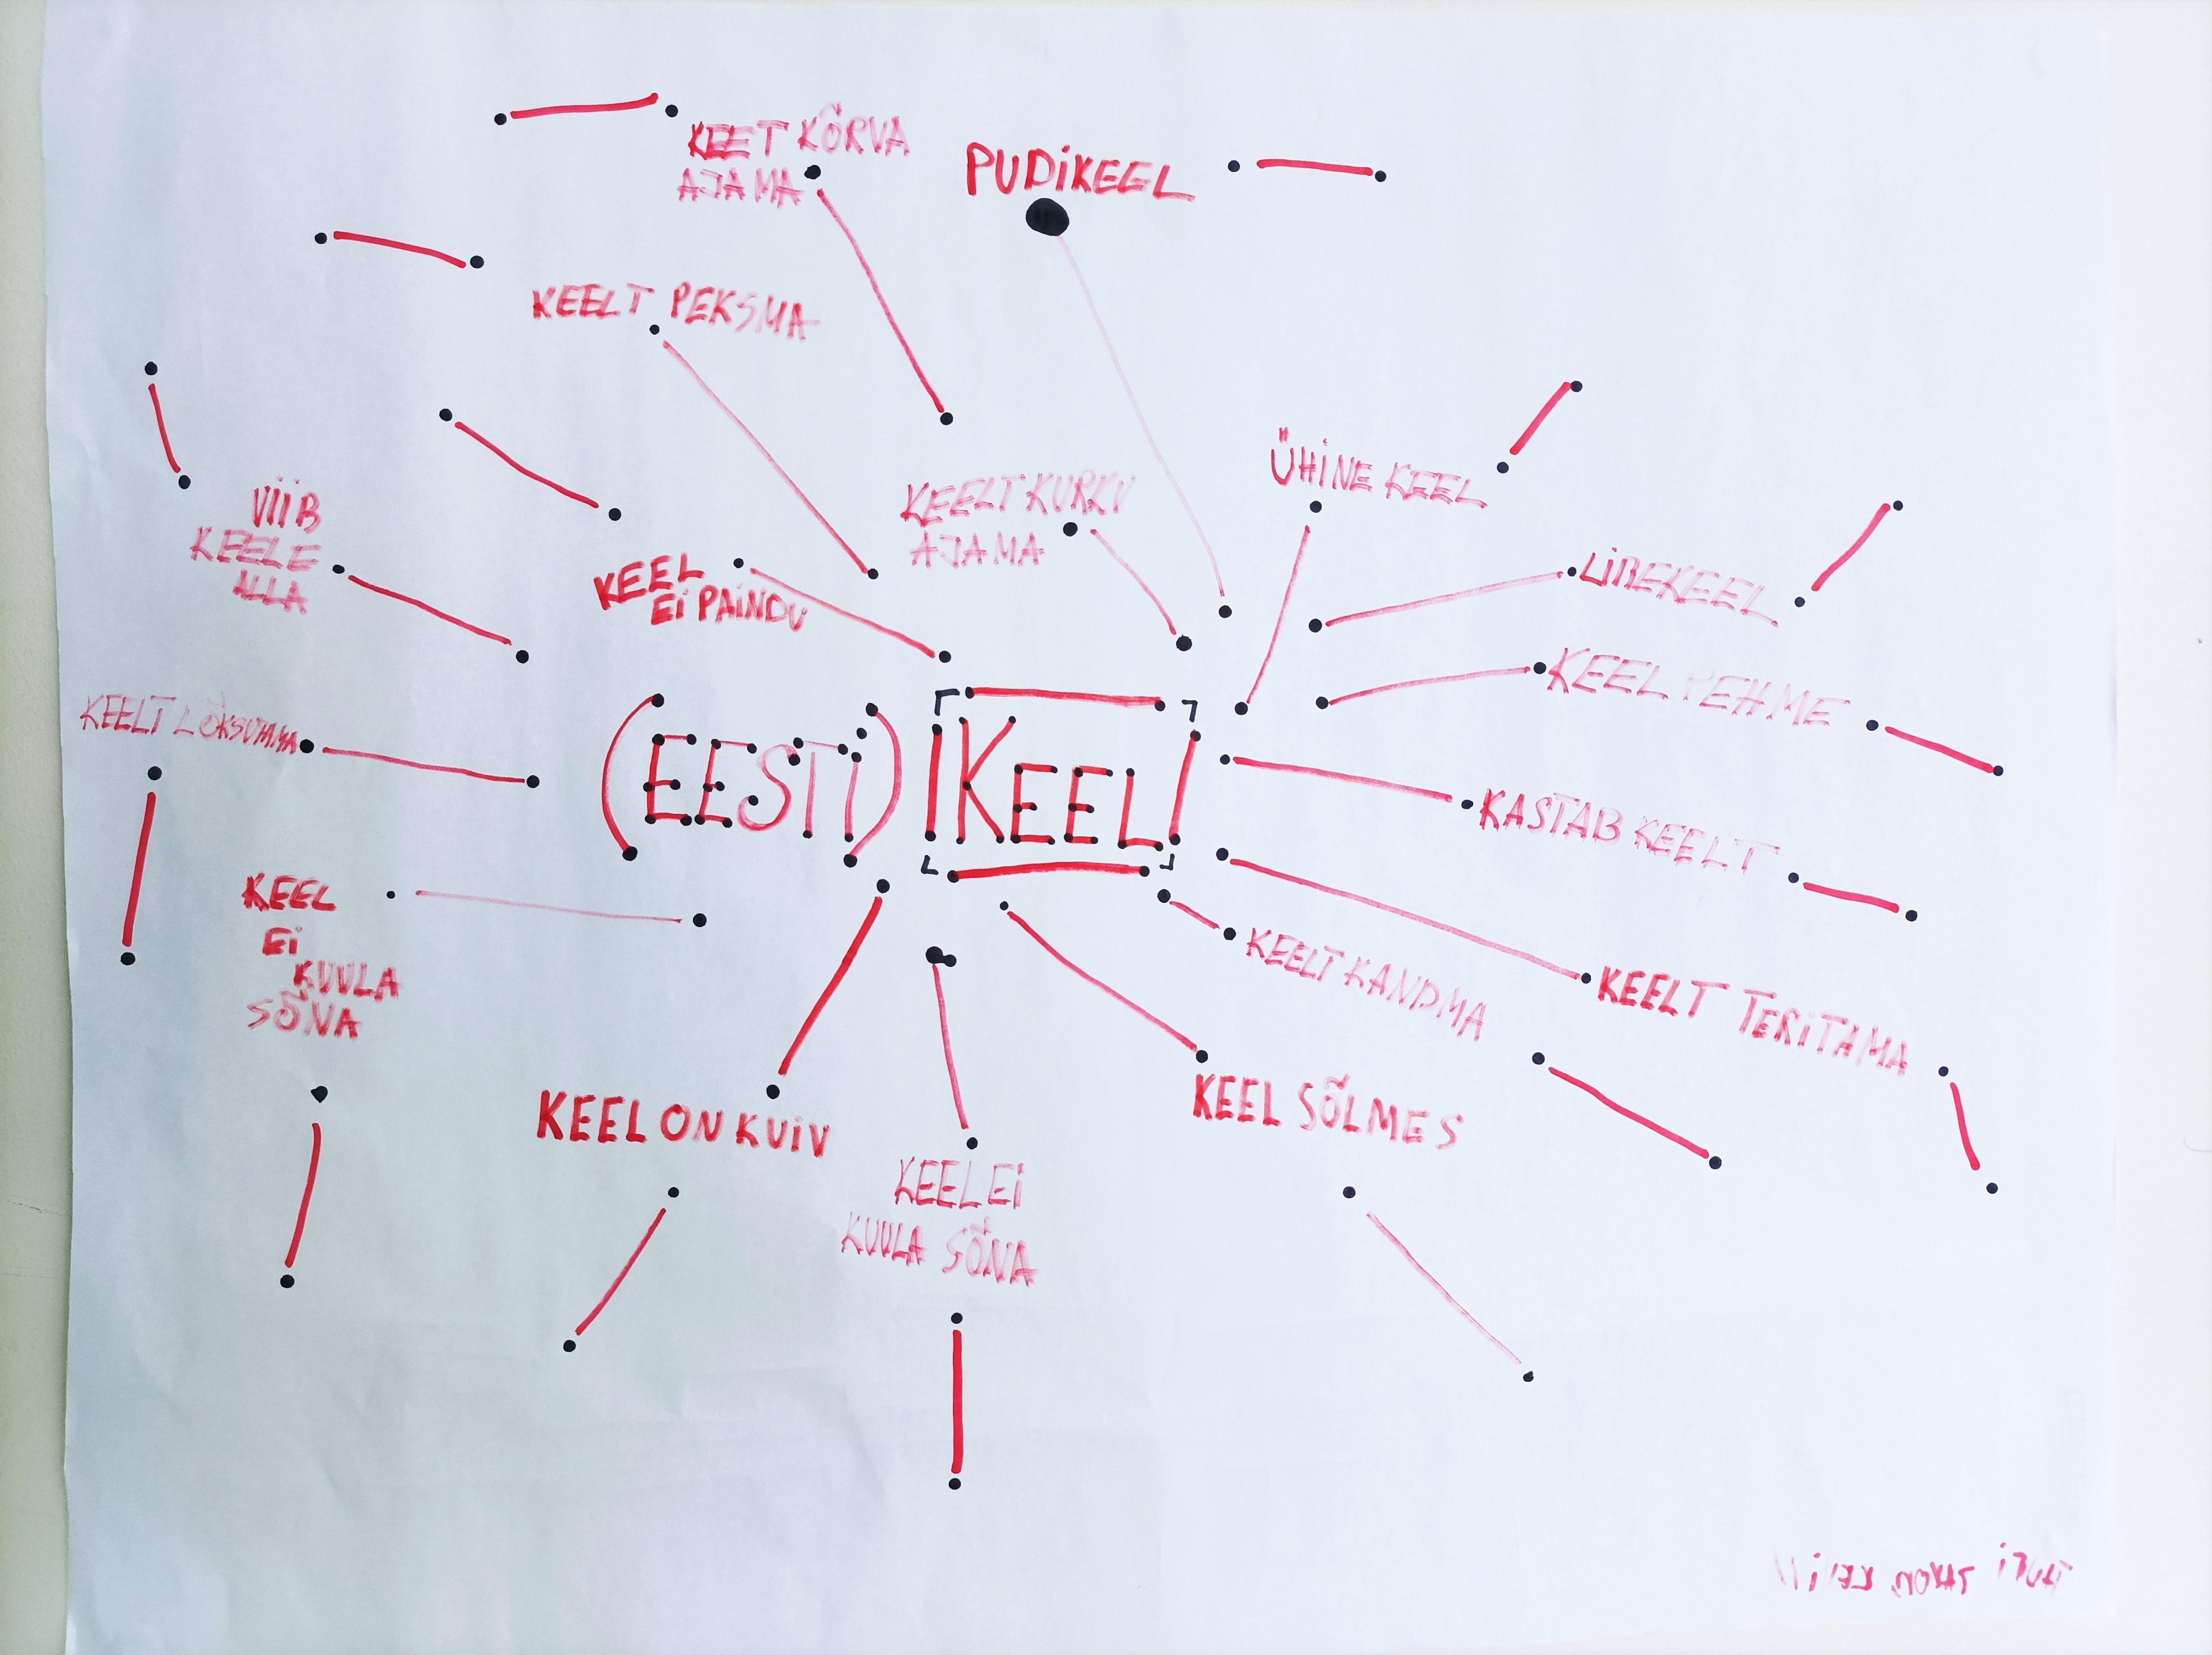 KEET KÕRVA
AJAMA
PUDIKEEL
KEELT PEKSMA
ÜHINE KEEL
KEELT KURKU
AJAMA
VIIB
KEELE
ALLA
KEEL
EI PAINDU
LIBEKEEL
KEEL PEHME
KEELT LÕKSUTAMA
(EESTI) KEEL
KASTAB KEELT
KEEL
EI
KUULA
SÕNA
KEELT KANDMA
KEELT TERITAMA
KEEL ON KUIV
KEEL SÕLMES
KEEL EI
KUULA SÕNA